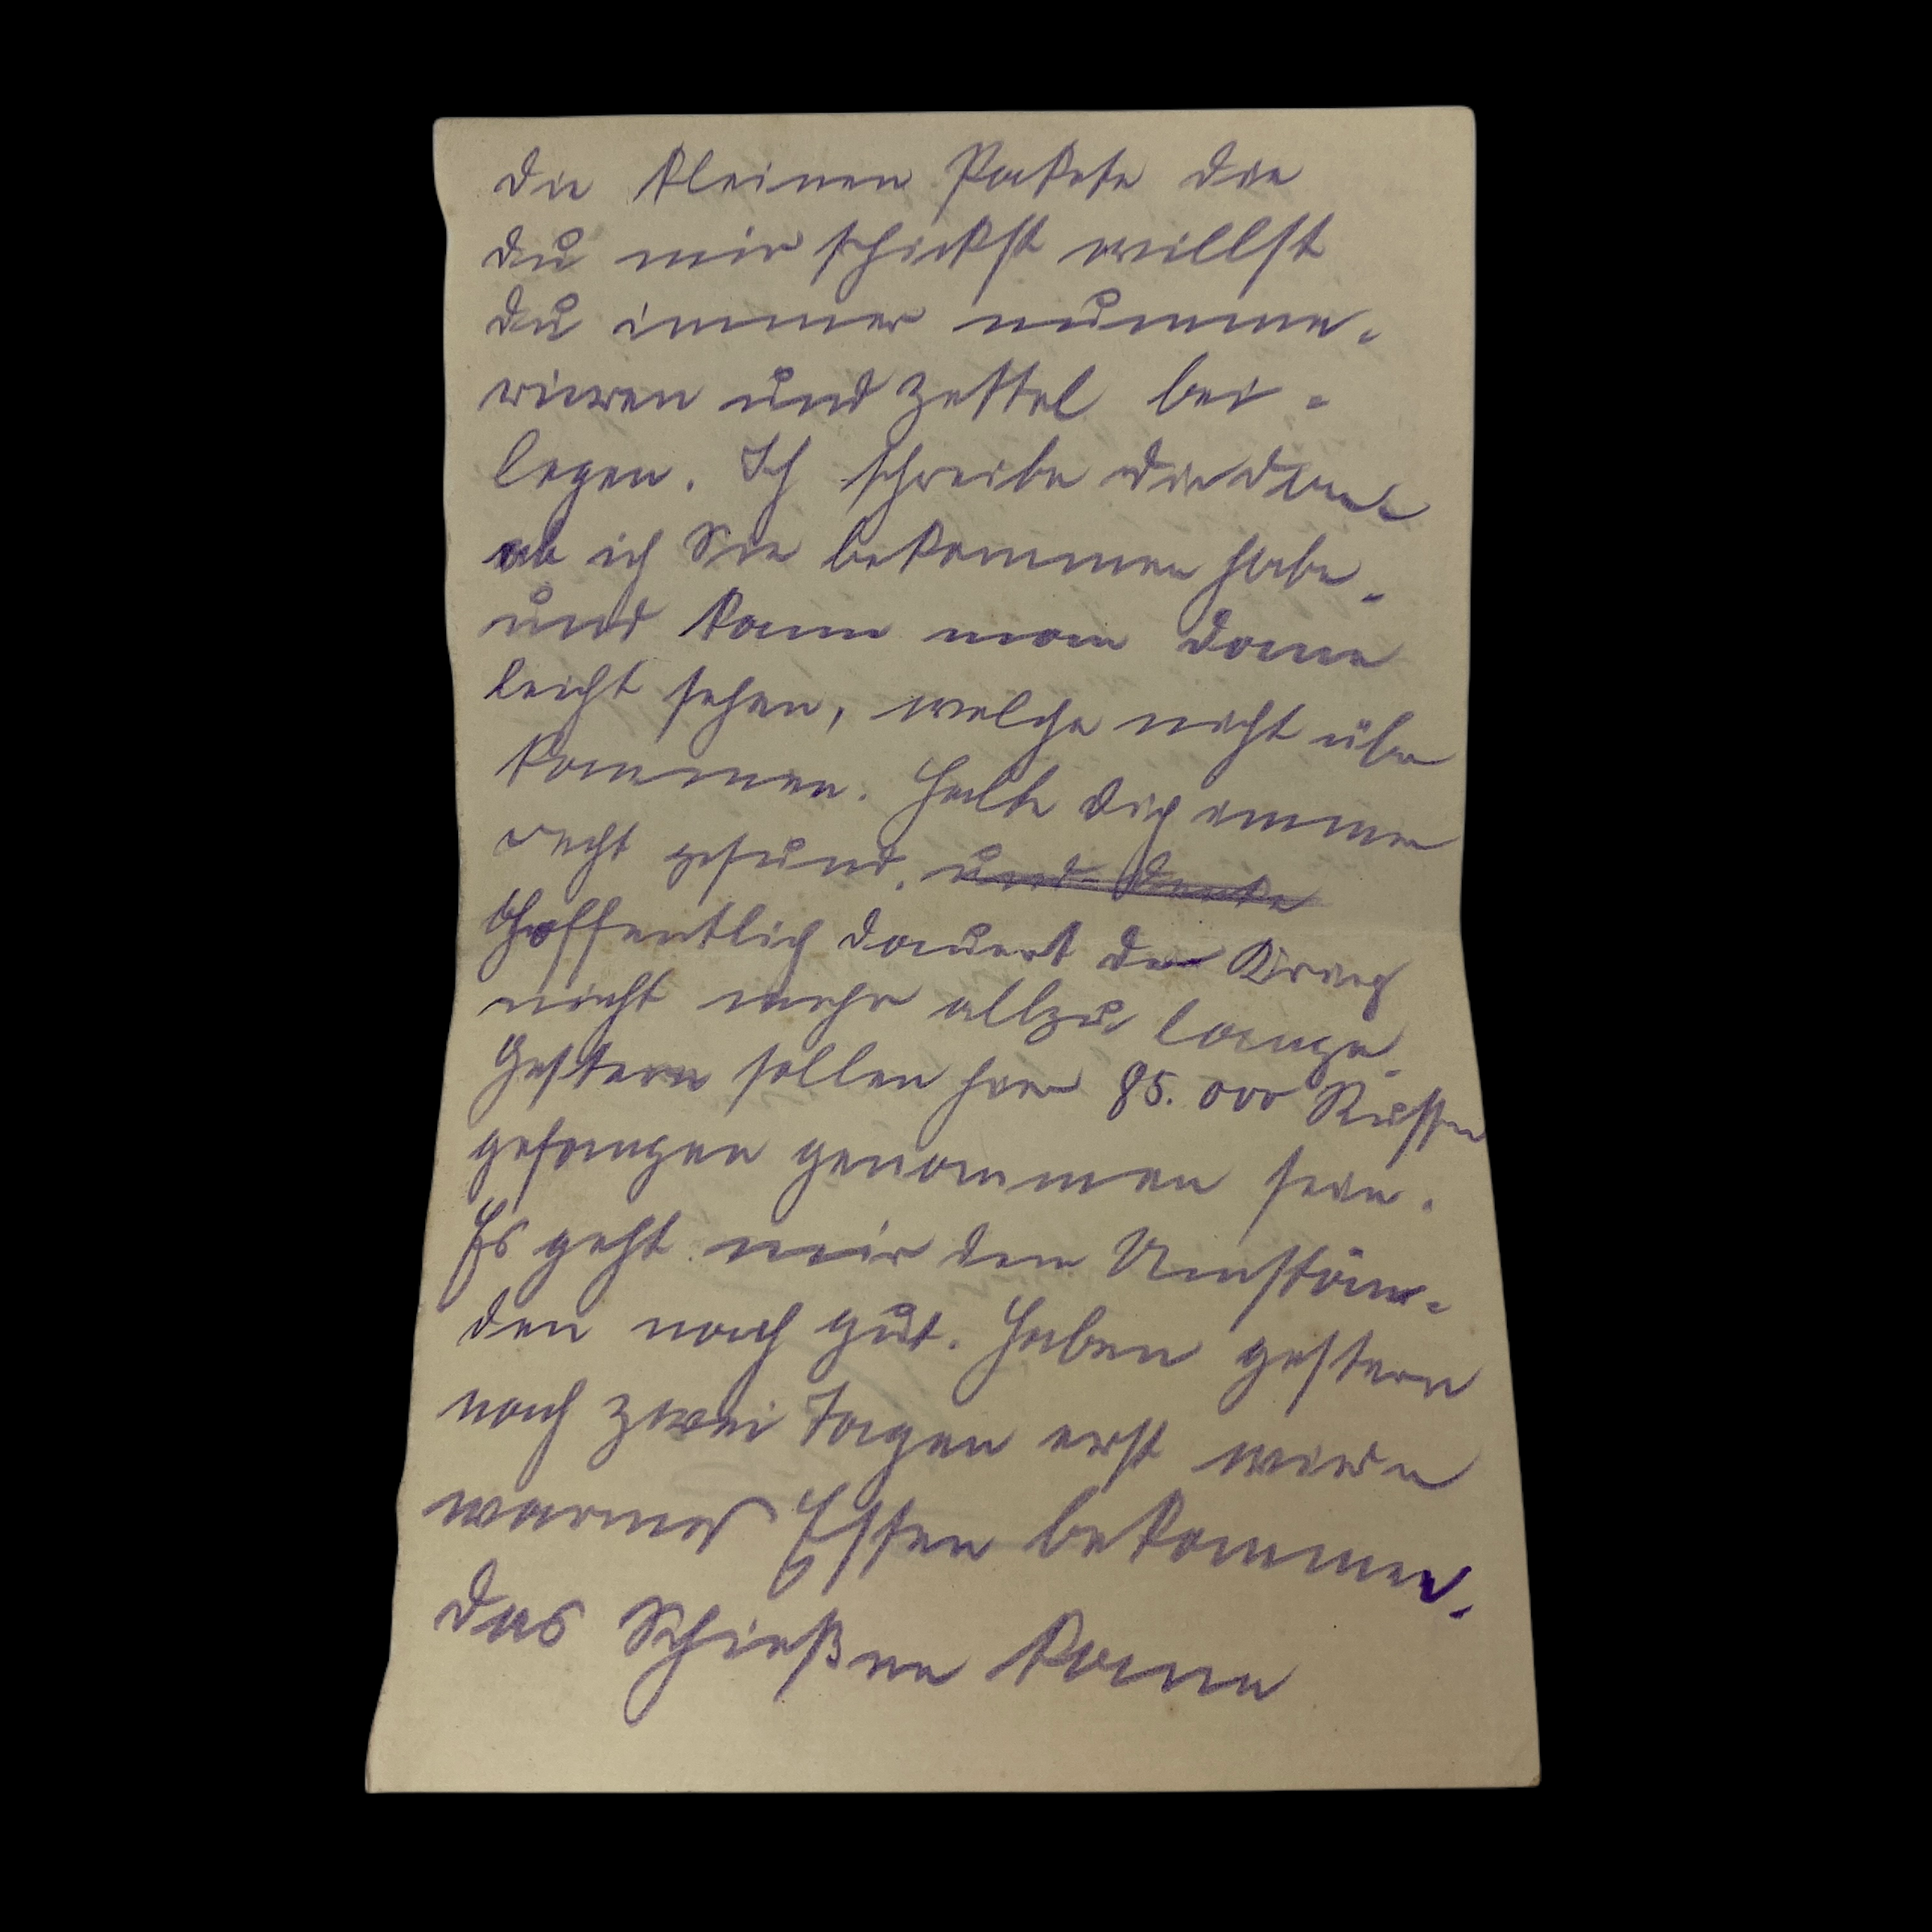 die kleinen Pakete die
du mir schickst willst
du immer numme-
rieren und Zettel bei-
legen. Ich schreibe die dann
ob ich Sie bekommen habe
und kann man dann
leicht sehen, welche nicht über
kommen. Halte dich immer
recht gesund. und denke
Hoffentlich dauert der Krieg
nicht mehr allzu lange.
Gestern sollen hier 85.000 Russen
gefangen genommen sein.
Es geht mir den Umstän-
den nach gut. Haben gestern
nach zwei Tagen erst wieder
warmes Essen bekommen.
das Schießen kann